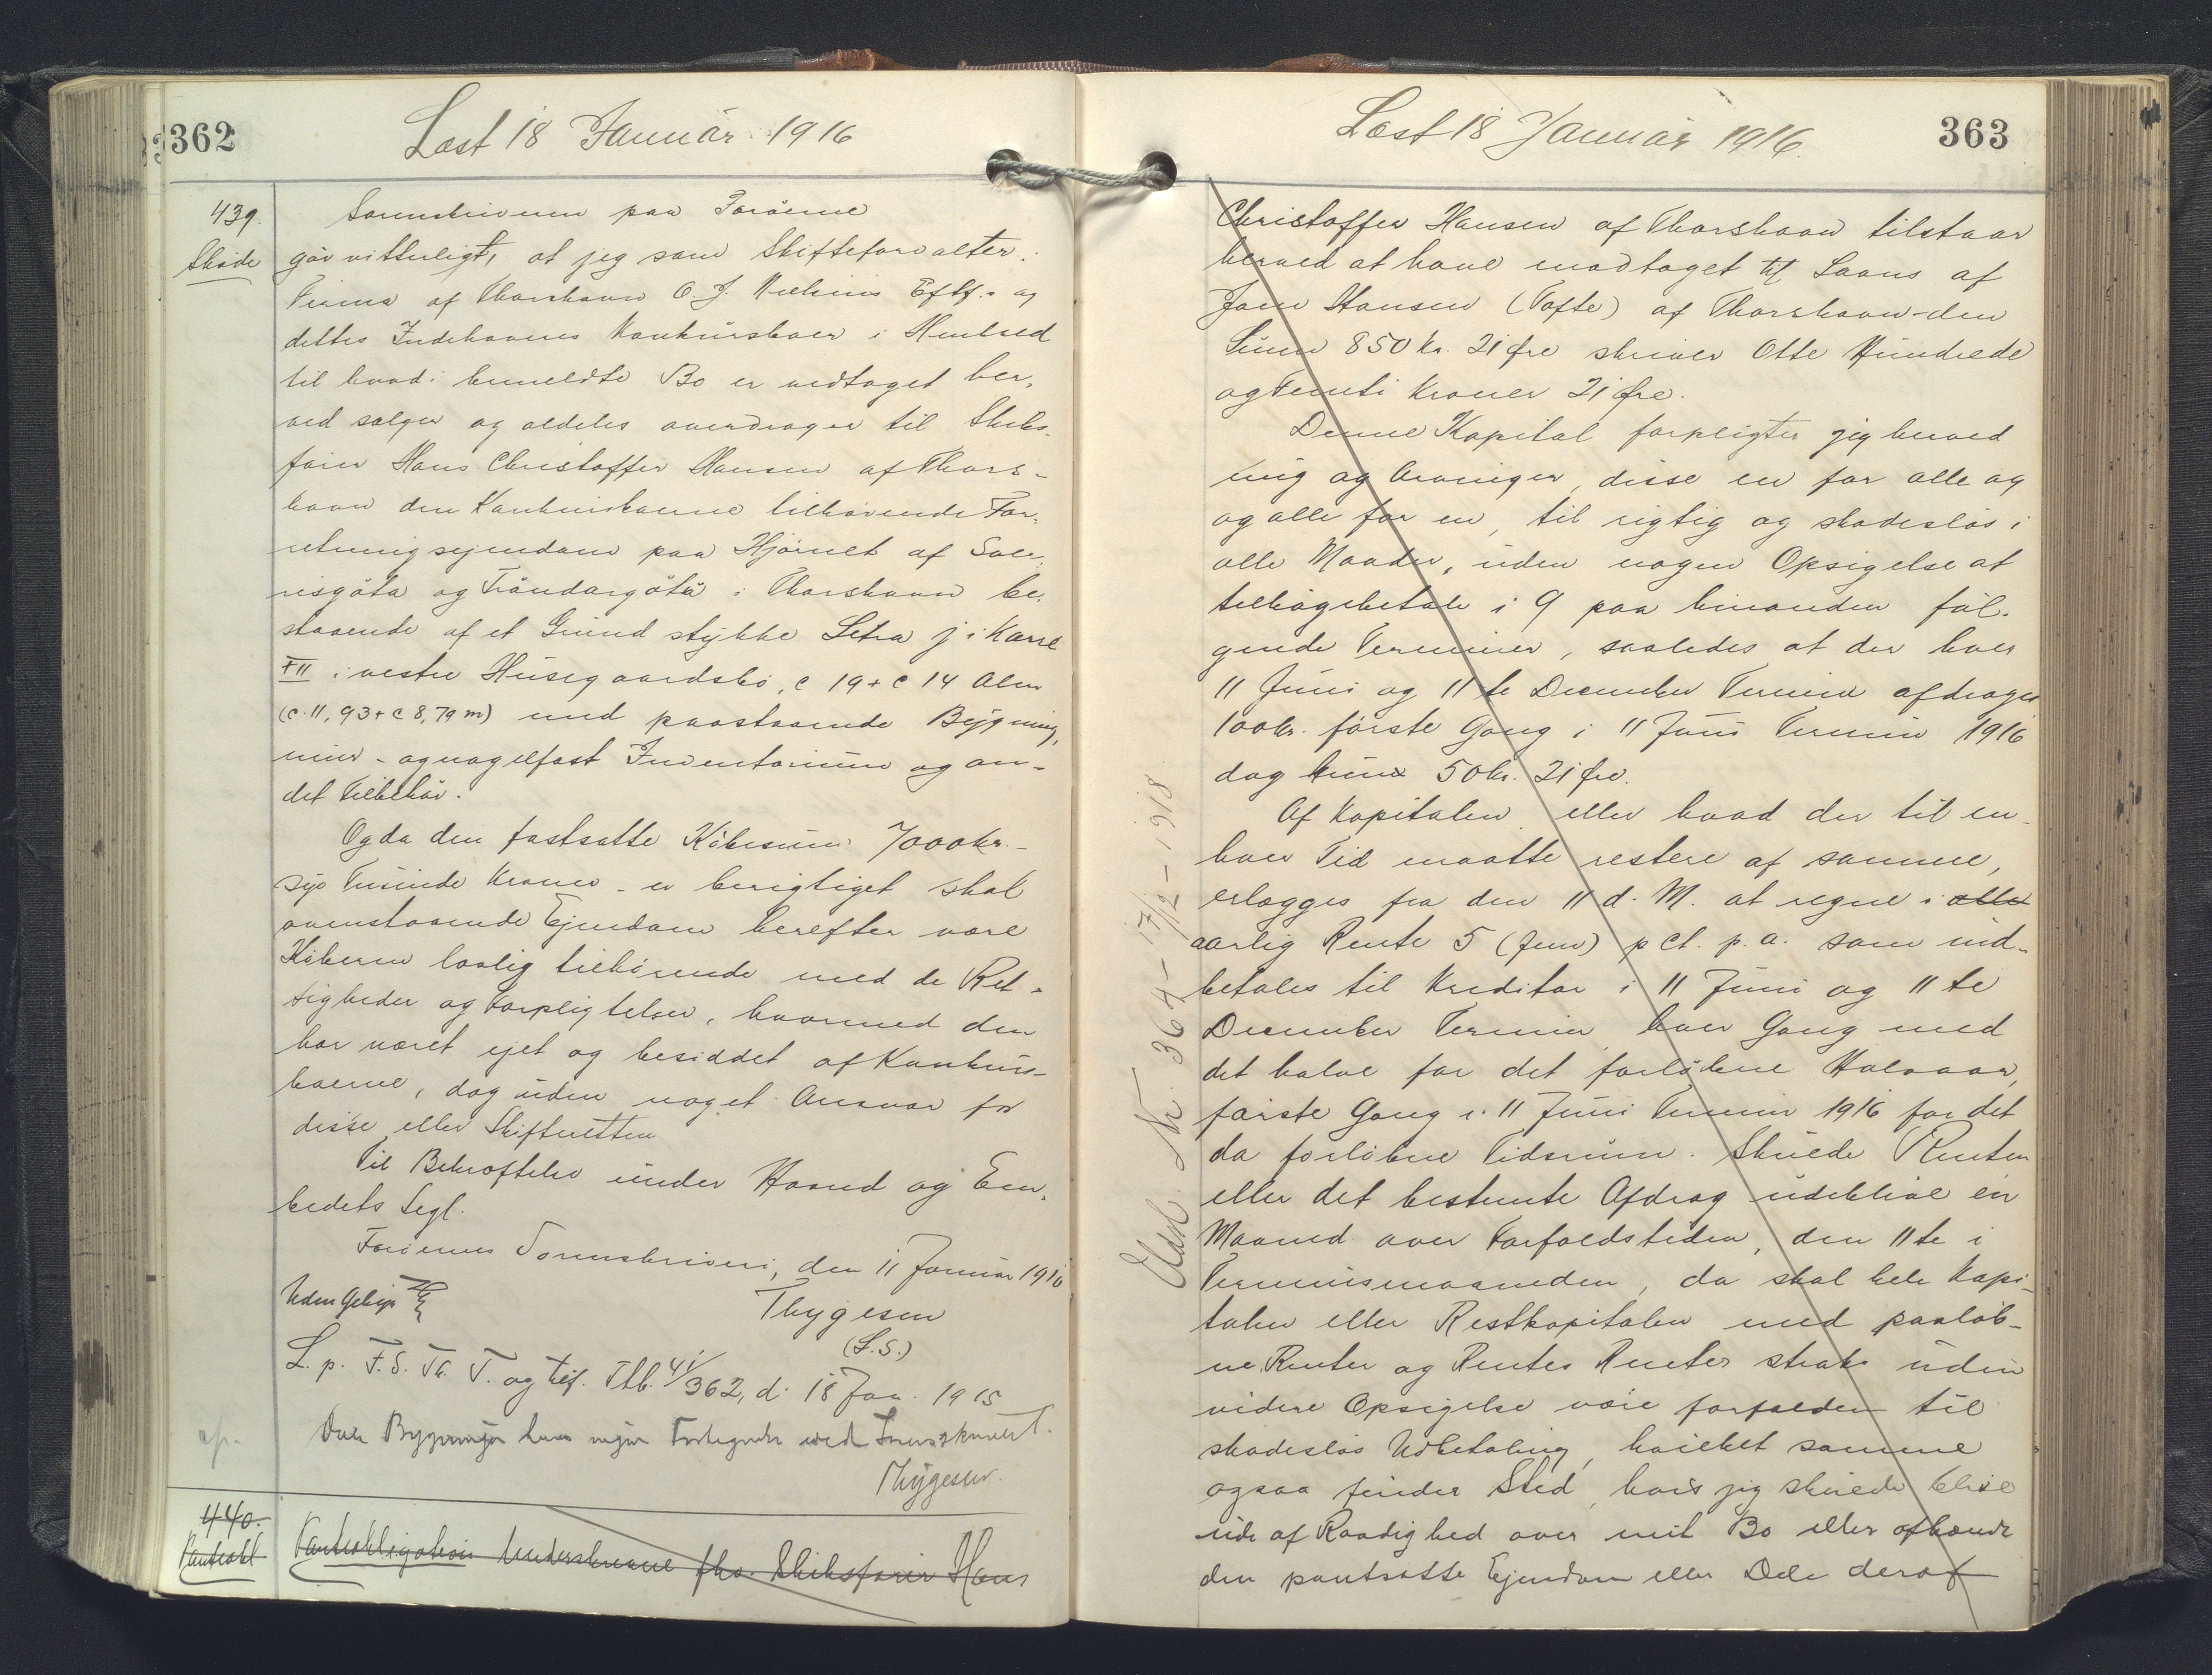 362
Læst 18 Januar 1916
439.
Skøde
Sorenskriveren paa Færøerne
gør vitterligt, at jeg som Skifteforvalter i
Firma af Thorshavn O. J. Nielsens Eftf.s og
dettes Indehaveres Konkursboer i Henhold
til hvad i bemeldte Bo er vedtaget her-
ved sælger og aldeles overdrager til Skibs-
fører Hans Christoffer Hansen af Thors-
havn den Konkursboerne tilhørende For-
retningsejendom paa Hjørnet af Sver-
risgøta og Tróndargøta i Thorshavn be-
staaende af et Grundstykke Litra j i Karré
XII i vestre Húsegaardsbø, c 19 + c 14 Alen
(c. 11,93 + c 8,79 m) med paastaaende Bygning,
mur- og nagelfast Inventarium og an-
det Tilbehør.
Og da den fastsatte Købesum 7000 kr. -
syv Tusinde Kroner - er berigtiget skal
ovenstaaende Ejendom herefter være
Køberen lovlig tilhørende med de Ret-
tigheder og Forpligtelser, hvormed den
har været ejet og besiddet af Konkurs-
boerne, dog uden noget Ansvar for
disse eller Skifteretten
Til Bekræftelse under Haand og Em-
bedets Segl.
Færøernes Sorenskriveri, den 11 Januar 1916
Uden Gebyr
Thygesen
(L.S.)
L. p. F. S. Th. T. og tilf. Tb. 4/362, d. 18 Jan. 1915
Bygningen
Thygesen.
440.
Panteobl
Panteobligation Underskrevne fhv. Skibsfører Hans
363
Læst 18 Januar 1916.
Christoffer Hansen af Thorshavn tilstaar
herved at have modtaget til Laans af
Joen Hansen (Tofte) af Thorshavn den
Sum 850 kr. 21 Øre skriver Otte Hundrede
og Femti Kroner 21 Øre.
Denne Kapital forpligter jeg herved
mig og Arvinger, disse en for alle og
og alle for en, til rigtig og skadesløs i
alle Maader, uden nogen Opsigelse at
tilbagebetale i 9 paa hinanden føl-
gende Terminer, saaledes at der hver
11 Juni og 11te December Termin afdrages
100 kr. første Gang i 11 Juni Termin 1916
dog kun 50 kr. 21 Øre.
Af Kapitalen eller hvad der til en-
hver Tid maatte restere af samme,
erlægges fra den 11 d. M. at regne i alle
aarlig Rente 5 (fem) pct. p. a. som ind-
betales til Kreditor i 11 Juni og 11te
December Termin hver Gang med
det halve for det forløbne Halvaar,
første Gang i 11 Juni Termin 1916 for det
da forløbne Tidsrum. Skulde Renten
eller det bestemte Afdrag udeblive én
Maaned over Forfaldstiden, den 11te i
Terminsmaaneden, da skal hele Kapi-
talen eller Restkapitalen med paaløb-
ne Renter og Rentes Renter straks uden
videre Opsigelse være forfalden til
skadesløs Udbetaling, hvilket samme
ogsaa finder Sted, hvis jeg skulde blive
ude af Raadighed over mit Bo eller afhænde
den pantsatte Ejendom eller Dele deraf
Udsl. Nr. 364 - 17/12 - 1918